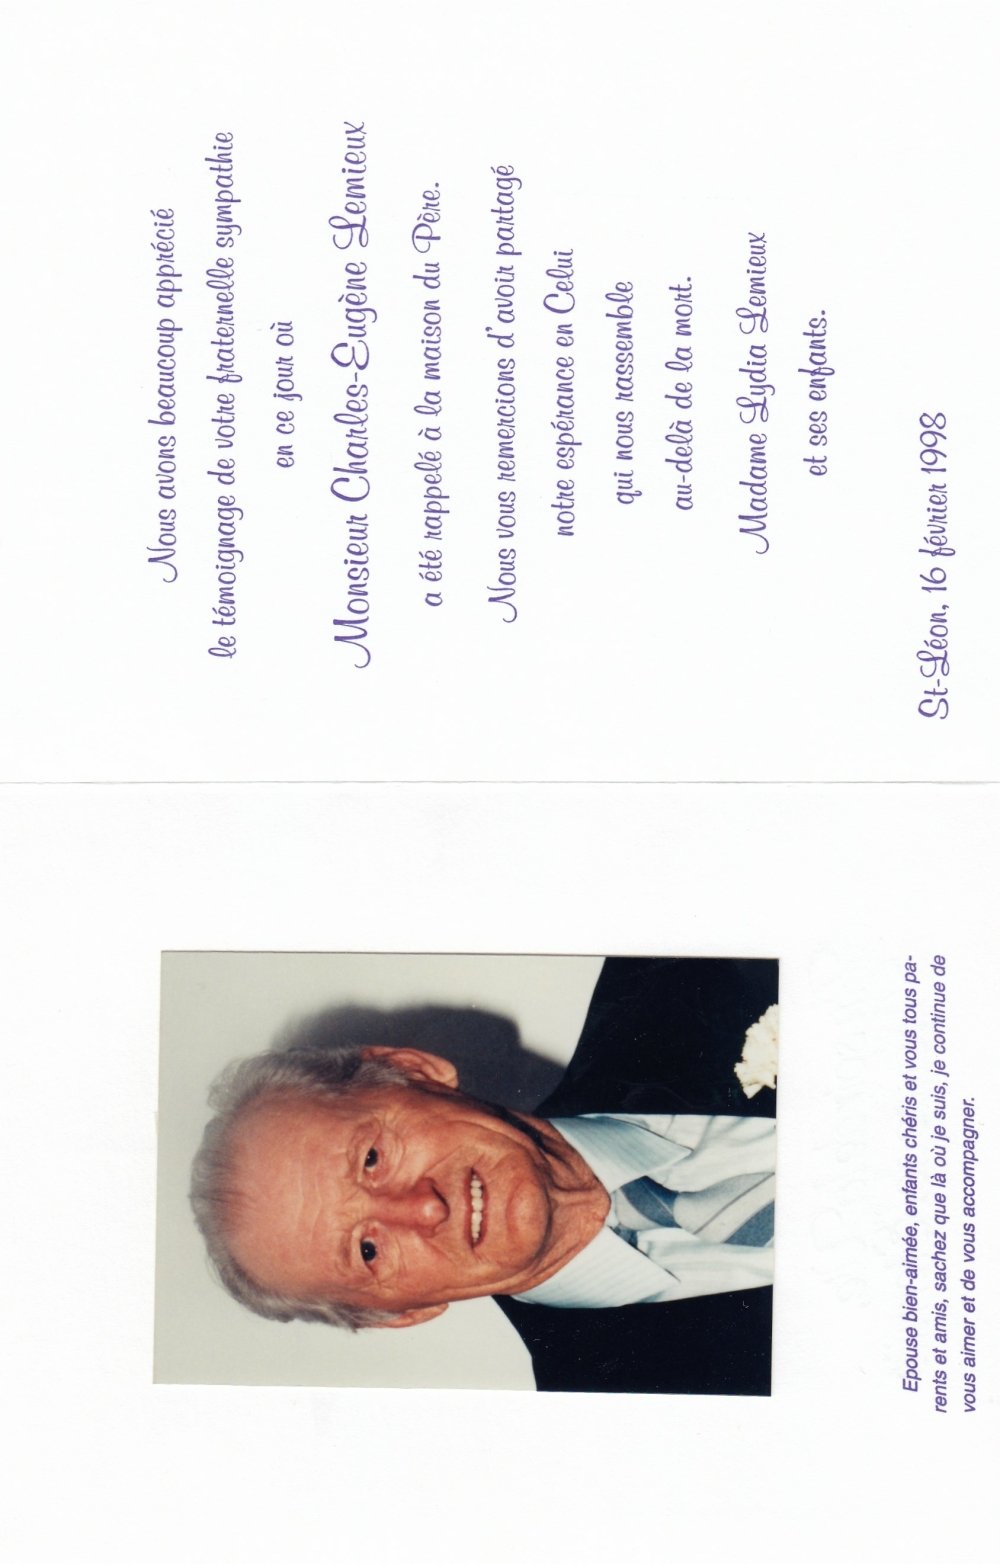 Epouse bien-aimée, enfants chéris et vous tous pa-
rents et amis, sachez que là où je suis, je continue de
vous aimer et de vous accompagner.
Nous avons beaucoup apprécié
le témoignage de votre fraternelle sympathie
en ce jour où
Monsieur Charles-Eugène Lemieux
a été rappelé à la maison du Père.
Nous vous remercions d'avoir partagé
notre espérance en Celui
qui nous rassemble
au-delà de la mort.
Madame Lydia Lemieux
et ses enfants.
St-Léon, 16 février 1998